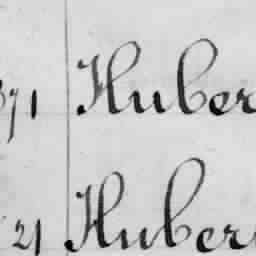 371 Huber
21 Huber